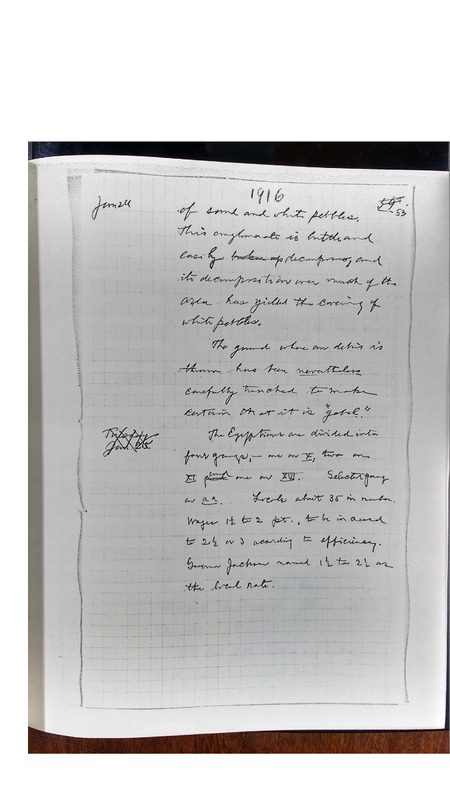 1916
Jan 24
53
of sand and white pebbles.
This conglomerate is brittle and
easily decomposes, and
its decomposition over much of the
area has yielded the covering of
white pebbles.
The ground where our debris is
thrown has been nevertheless
carefully trenched to make
certain that it is "gebel."
The Egyptians are divided into
four gangs,— one on X, two on
XI and one on XVI. Selected gang
on
Locals about 35 in number.
Wages 1½ to 2 pt., to be increased
to 2½ or 3 according to efficiency.
Governor Jackson named 1½ to 2½ as
the local rate.